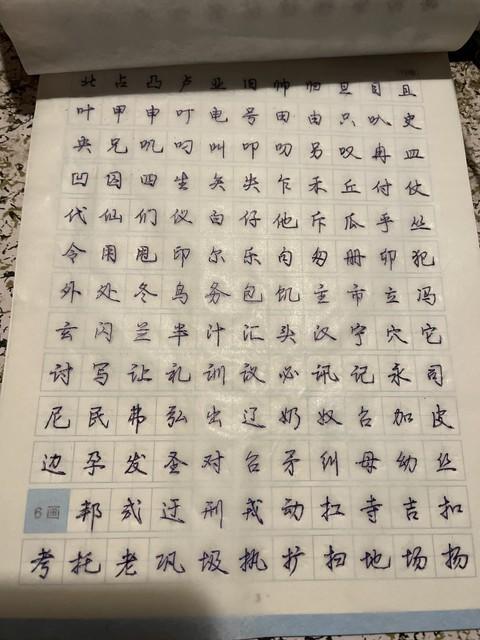 北 占 凸 卢 业 旧 帅 归 旦 目 且
叶 甲 申 叮 电 号 田 由 只 叭 史
央 兄 叽 叼 叫 叩 叨 另 叹 冉 皿
凹 囚 四 生 矢 失 乍 禾 丘 付 仗
代 仙 们 仪 白 仔 他 斥 瓜 乎 丛
令 用 甩 印 尔 乐 句 匆 册 卯 犯
外 处 冬 鸟 务 包 饥 主 市 立 冯
玄 闪 兰 半 汁 汇 头 汉 宁 穴 它
讨 写 让 礼 训 议 必 讯 记 永 司
尼 民 弗 弘 出 辽 奶 奴 召 加 皮
边 孕 发 圣 对 台 矛 纠 母 幼 丝
6画 邦 式 迂 刑 戎 动 扛 寺 吉 扣
考 托 老 巩 圾 执 扩 扫 地 场 扬
3